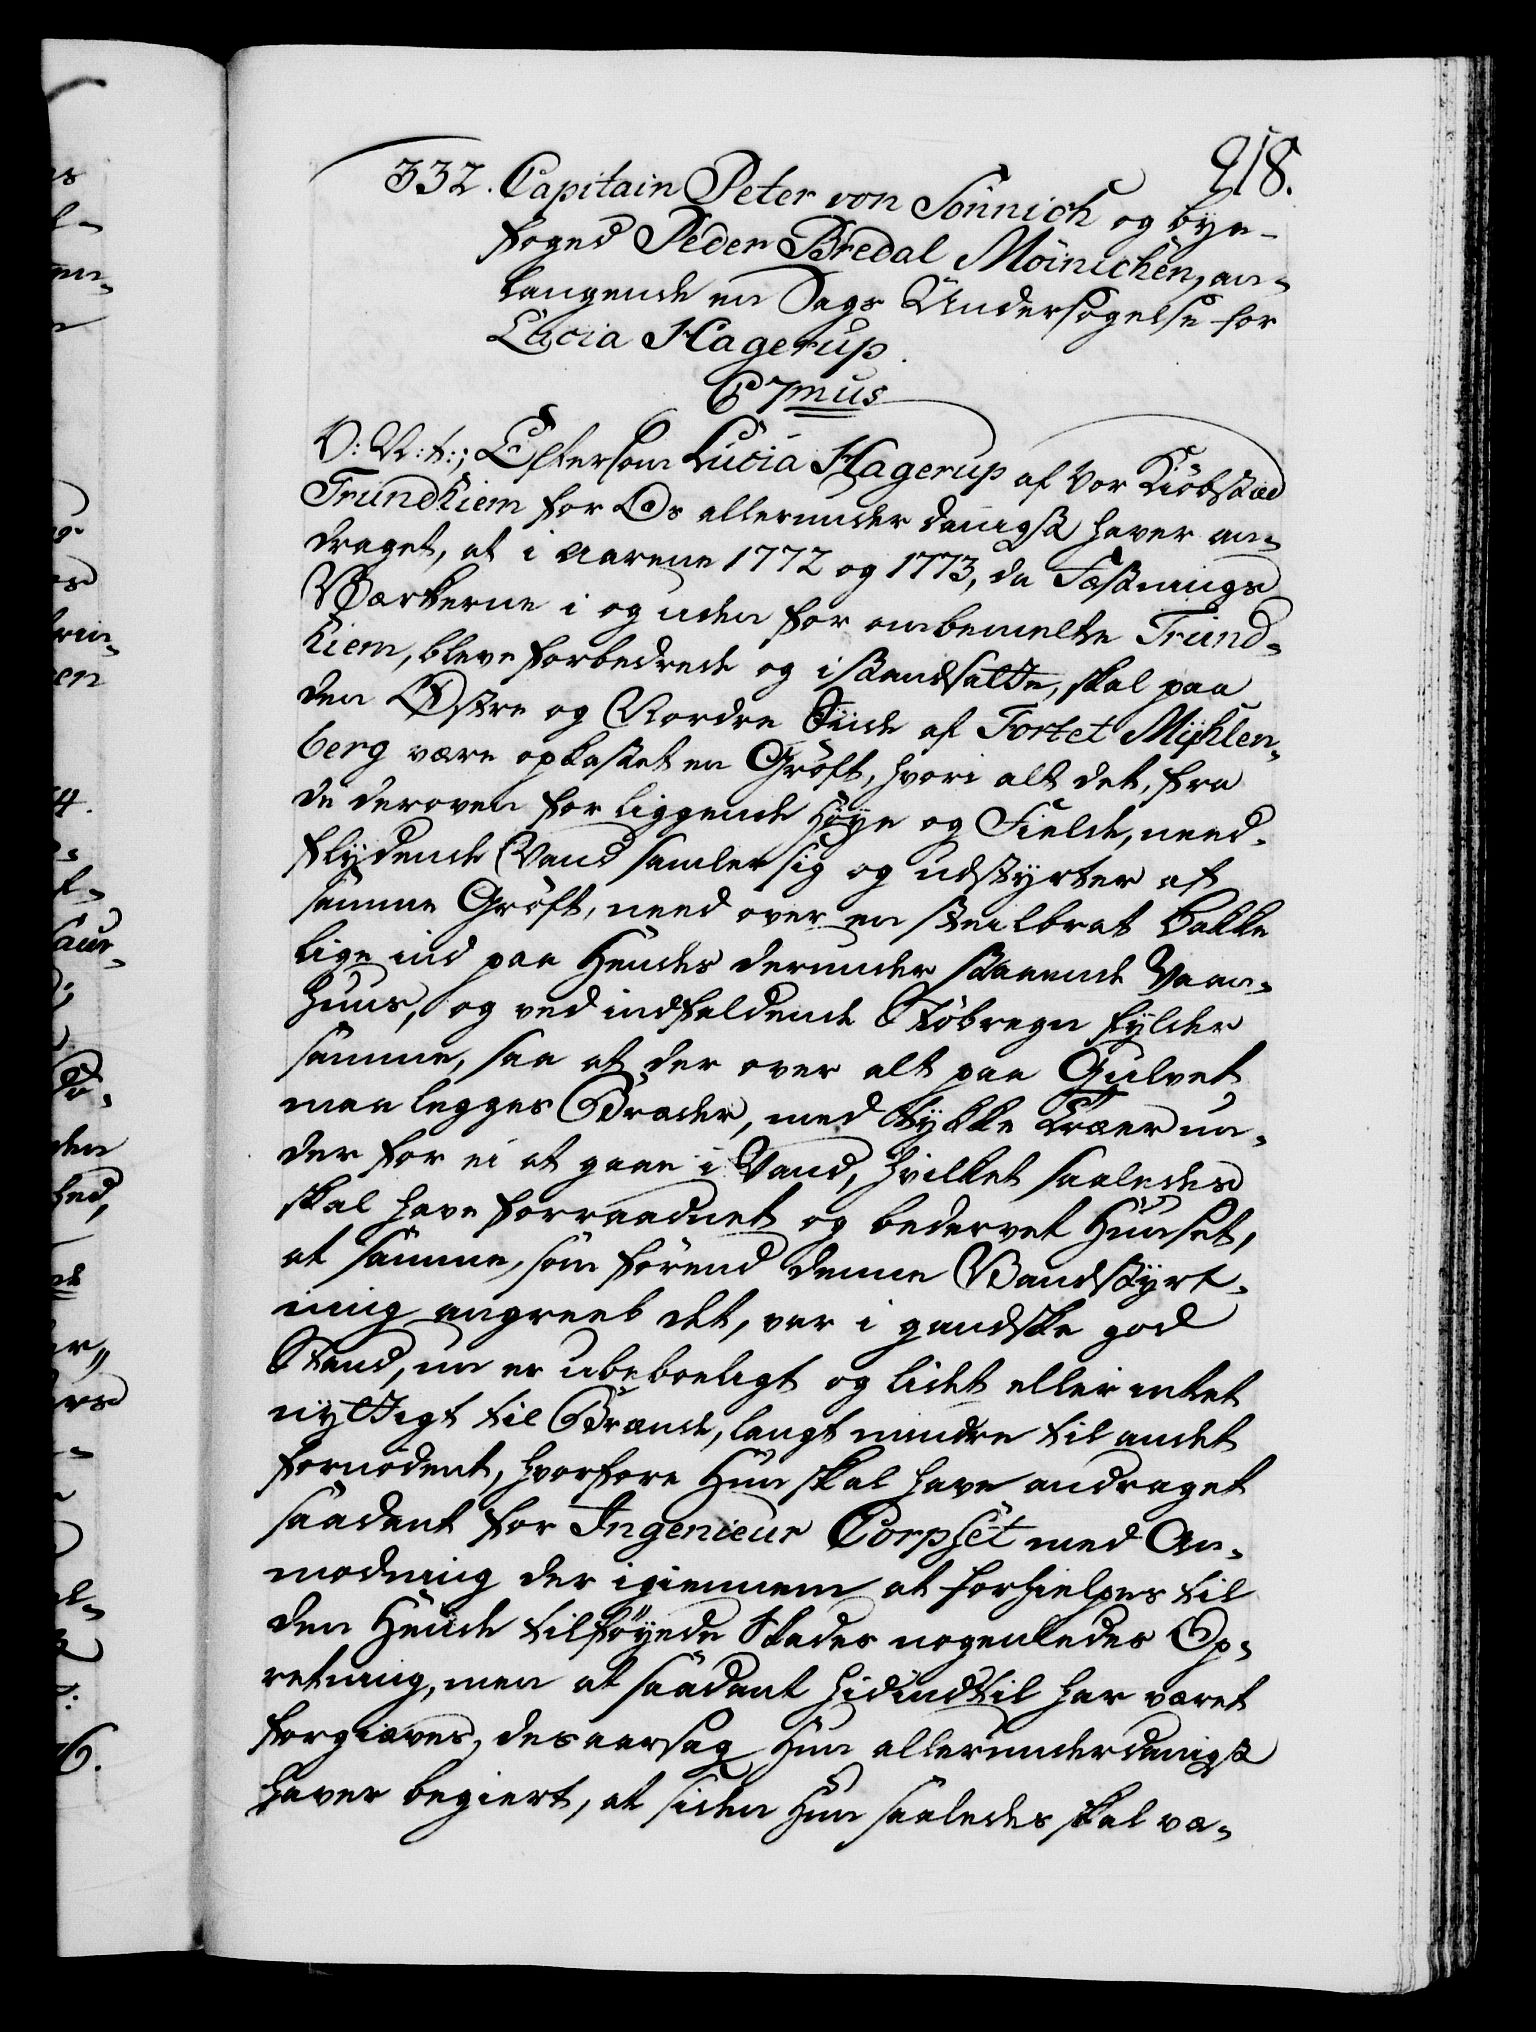 218.
332. Capitain Peter von Sönnich og bye-
foged Peder Bredal Möinichen, an-
langende en Sags Undersøgelse for
Lucia Hagerup.
C7mus
V: A: t:; Eftersom Lucia Hagerup af Vor Kiöbstæd
Trundhiem for Os allerunderdanigst haver an-
draget, at i Aarene 1772 og 1773, da Fæstnings
Værkerne i og uden for ombemelte Trund-
hiem, bleve forbedrede og istandsatte, skal paa
den Østre og Nordre Siide af Fortet Myhlen-
berg være opkastet en Gröft, hvori alt det, fra
de deroven for liggende Höye og Fielde, need-
flydende Vand samler sig og udstyrter af
samme Gröft, need over en steilbrat Bakke
lige ind paa Hendes derunder staaende Vaan-
huus, og ved indfaldende Stöbregn fylder
samme, saa at der over alt paa Gulvet
maae legges Bræder, med tykke Træer un-
der for ei at gaae i Vand, hvilket saaledes
skal have forraadnet og bedervet Huuset,
at samme, som förend denne Vandstyrt-
ning angreeb det, var i gandske god
Stand, nu er ubeboeligt og lidet eller intet
nyttigt til Brænde, langt mindre til andet
fornödent, hvorfore Hun skal have andraget
saadant for Ingenieur Corpset med An-
modning der igiennem at forhielpes til
den Hende tilföyede Skades nogenledes Op-
retning, men at saadant hidindtil har været
forgiæves, desaarsag Hun allerunderdanigst
haver begiert, at siden Hun saaledes skal væ-